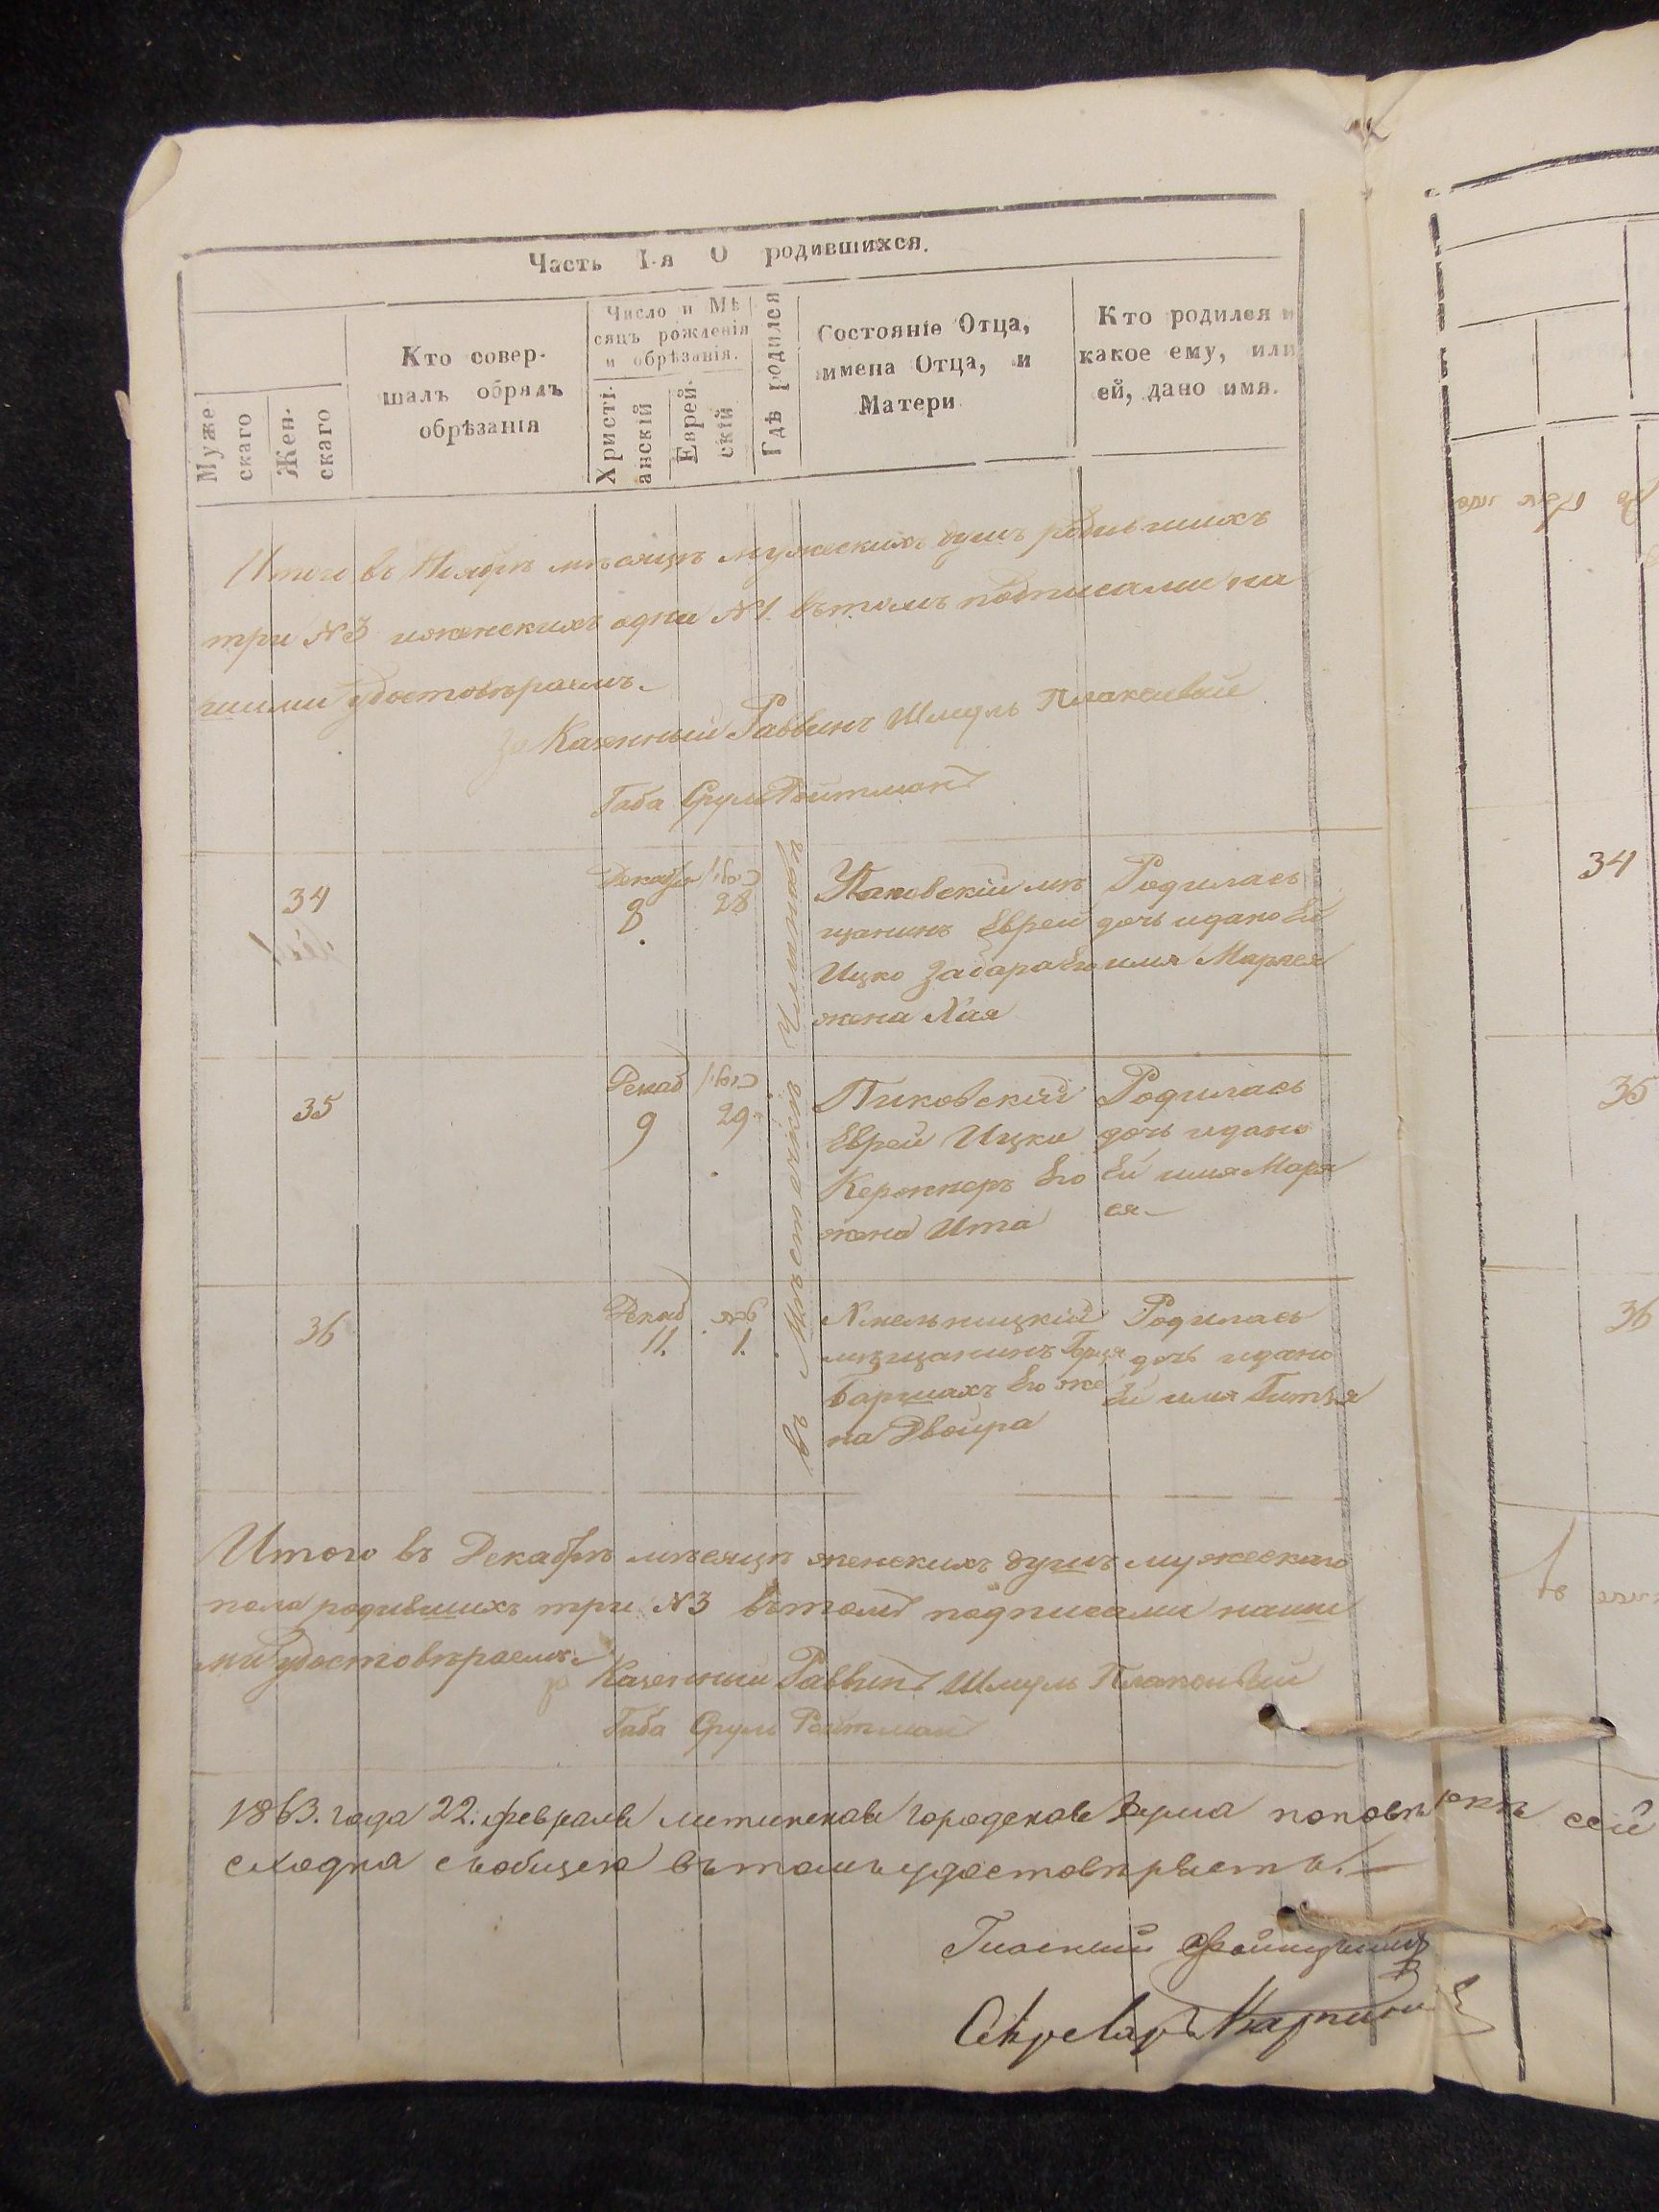 Часть I-я О родившихся.
Муже
скаго
Жен-
скаго
Кто совер-
шалъ обрядъ
обрѣзанія
Число и Мѣ
сяцъ рожденія
и обрѣзанія.
Христі-
анскій
Еврей-
скій
Гдѣ родился
Состояніе Отца,
имена Отца, и
Матери
Кто родился и
какое ему, или
ей, дано имя.
Итого въ Ноябрѣ мѣсяцѣ мужескихъ душъ родившихъ
три №3 и женскихъ одна №1. въ томъ подписами на
шими удостовѣраемъ.
за Казенный Раввинъ Шмуль Плаксивый
Габа Сруль Ройтман
34
Декабря
8
28
мѣ
щанинъ Еврей
Ицко его
жена Хая
Родилась
дочь и дано Ей
имя Марясея
35
Декаб
9
29
Пиковскій
Еврей Ицко
Его
жена Ита
Родилась
дочь и дано
Ей имя Маря
ся
36
Декаб
11.
1.
Хмельницкій
мѣщанинъ
Его же
на Двойра
Родилась
дочь и дано
Ей имя Гитля
въ Мѣстечкѣ
Итого въ Декабрѣ мѣсяцѣ женскихъ душъ мужескаго
пола родившихъ три №3 въ томъ подписами наши
ми удостовѣраемъ.
за Казенный Раввинъ Шмуль Плаксивый
Габа Сруль Ройтман
1863. года 22. февраля литинская Городская Дума по повѣркѣ сей
сходна съ общею въ томъ удостовѣряетъ.
Гласный
Секретарь
34
35
36